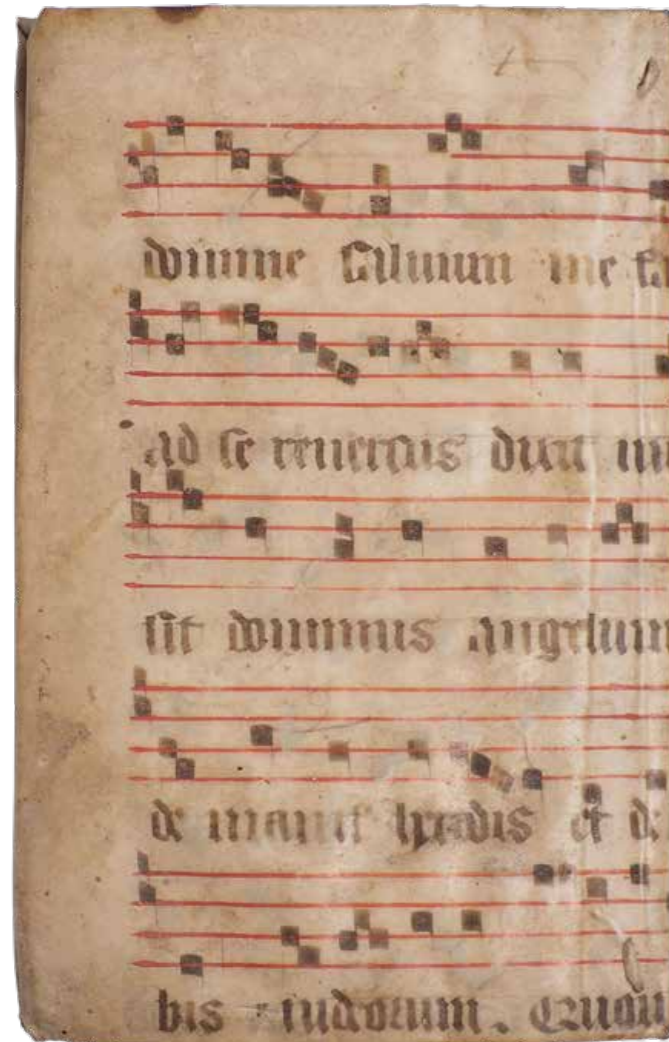 domine saluum me fa
ad se reuersus dixit nu
sit dominus angelum
de manu herodis et de
bis iudeorum.